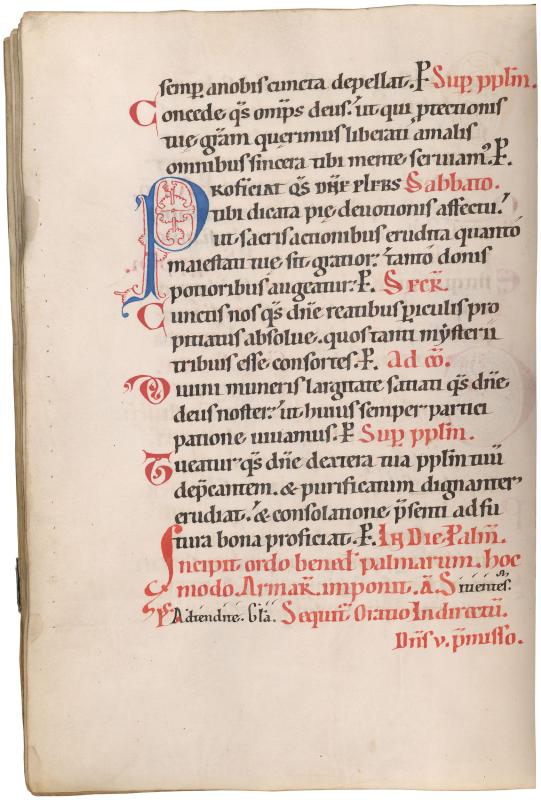 semp̱ anobis cuncta depellat. P̱ Sup̱ pplm̄.
Concede qs̄ omp̄s deus. ut qui ꝓtectionis
tuę gr̄am querimus liberati amalis
omnibus sincera tibi mente seruiam᷒. P̱.
PROFICIAT QS̄ DN̄E PLEBS Sabbato.
tibi dicata pię deuotionis affectu.
ut sacris actionibus erudita quanto
maiestati tuę fit gratior. tanto donis
potioribus augeatur. P̱. SECR̄.
Cunctis nos qs̄ dn̄e reatibus & p̱iculis pro
pitiatus absolue. quos tanti mẏsterii
tribuis esse consortes. P̱. Ad cō.
Diuini muneris largitate satiati qs̄ dn̄e
deus noster. ut huius semper partici
patione uiuamus. P̱ Sup̱ pplm̄.
Tueatur qs̄ dn̄e dextera tua pplm̄ tuū
dep̄cantem. & purificatum dignanter
erudiat. & consolatione p̄senti ad fu
tura bona proficiat. P̱. IN DIE PALM̄.
Incipit ordo bened̄ palmarum. hoc
modo. Armar̄. imponit. Ā. Si uientes.
Ps̄. Adtendite. Gl̄a. Sequit̄ Oratio